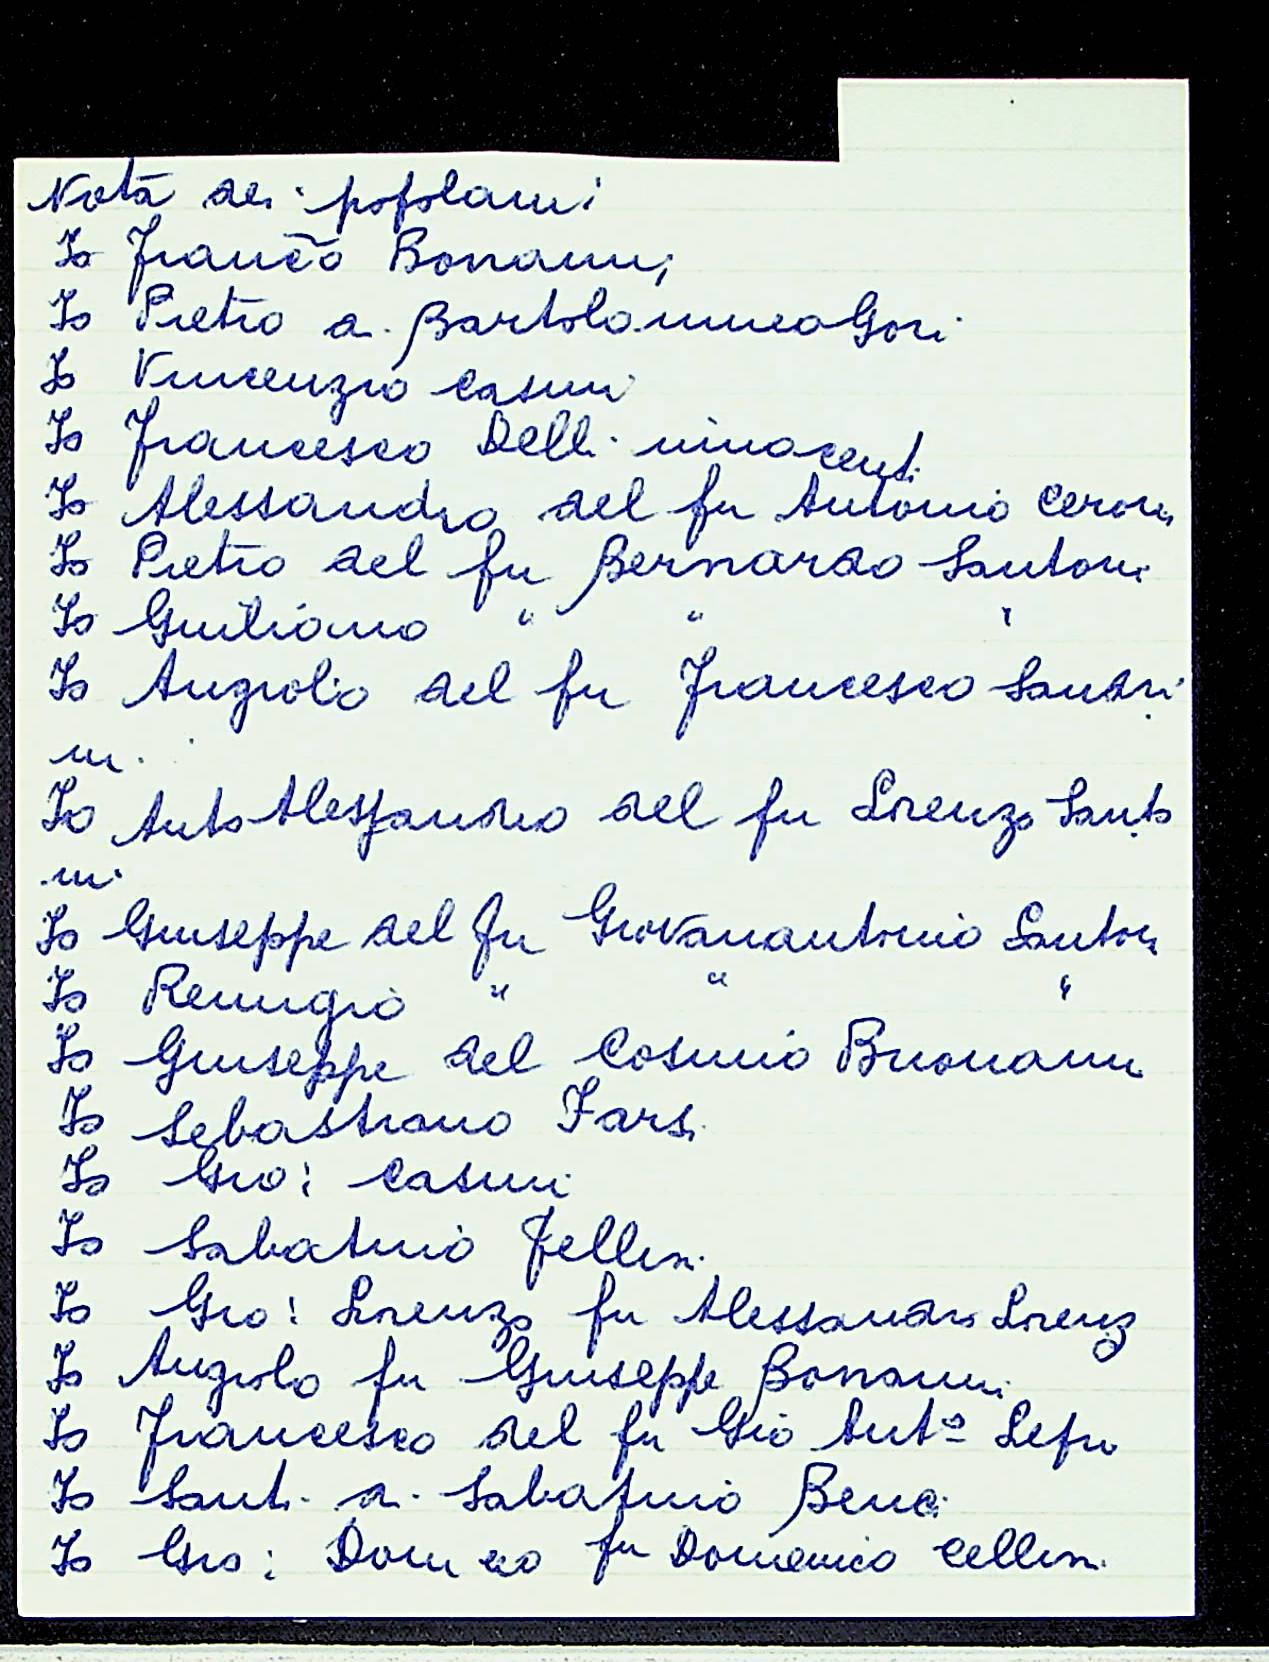 Nota dei popolani
Io Franc̃o Bonanni
Io Pietro di Bartolommeo Gori
Io Vincenzio Casini
Io Francesco Delli innocenti
Io Alessandro del fu Antonio Ceroni
Io Pietro del fu Bernardo Santoni
Io Giuliano " " "
Io Angiolo del fu Francesco Santri
ni
Io Anto Alessandro del fu Lorenzo Santo
ni
Io Giuseppe del fu Giovanantonio Santoni
Io Remigio " " "
Io Giuseppe del Cosimo Buonanni
Io Sebastiano Farsi
Io Gio: Casini
Io Sabatino Fellini
Io Gio: Lorenzo fu Alessandro Lorenz
Io Angiolo fu Giuseppe Bonanni
Io Francesco del fu Gio Antº Lepri
Io Santi di Sabatino Benci
Io Gio: Domeco fu Domenico Cellini